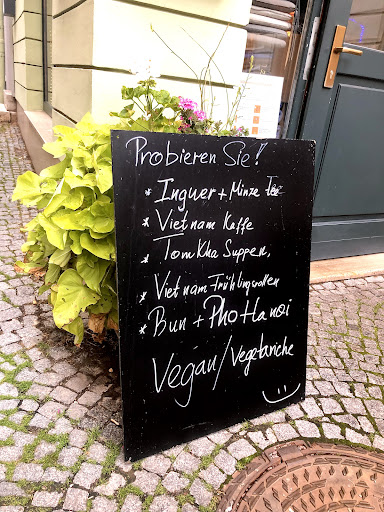 Probieren Sie!
* Ingwer + Minze Tee
* Vietnam Kaffe
* TomKha Suppen,
* Vietnam Frühlingsrollen
* Bun + Pho Hanoi
Vegan/Vegetariche